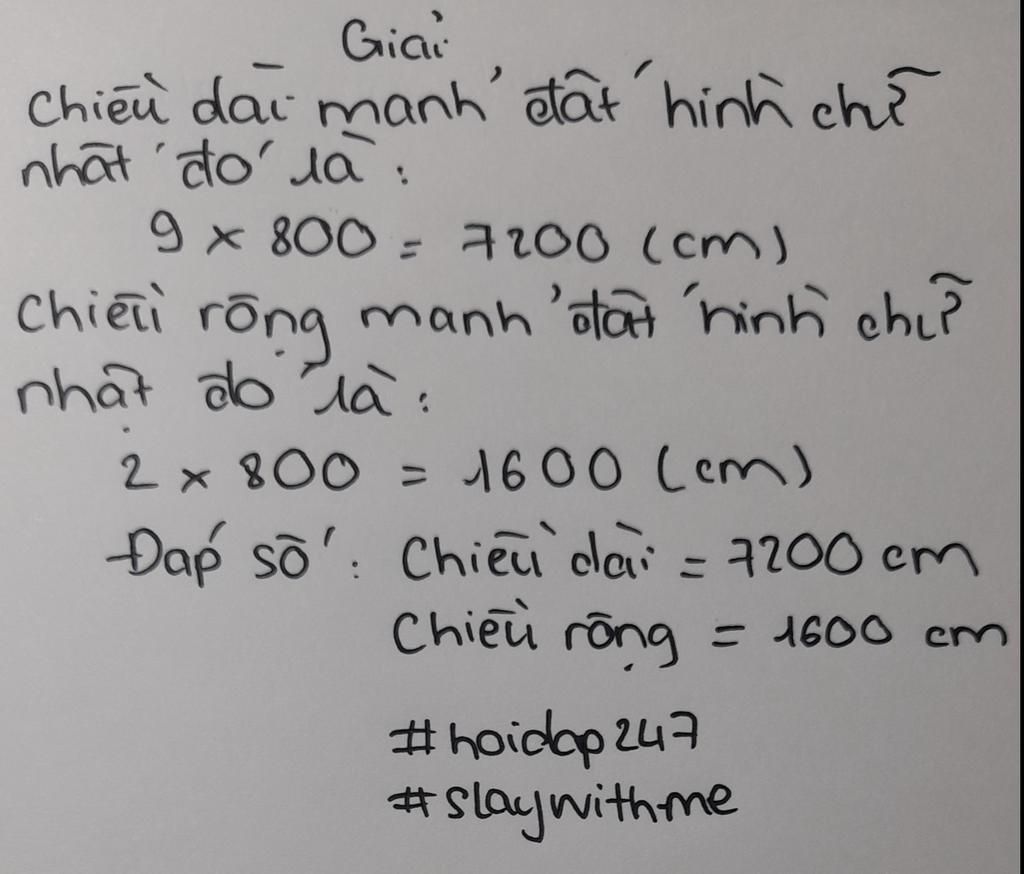 Giải
Chiều dài mảnh đất hình chữ
nhật đó là :
9 x 800 = 7200 (cm)
Chiều rộng mảnh đất hình chữ
nhật đó là :
2 x 800 = 1600 (cm)
Đáp số : Chiều dài = 7200 cm
Chiều rộng = 1600 cm
#hoidap247
#slaywithme